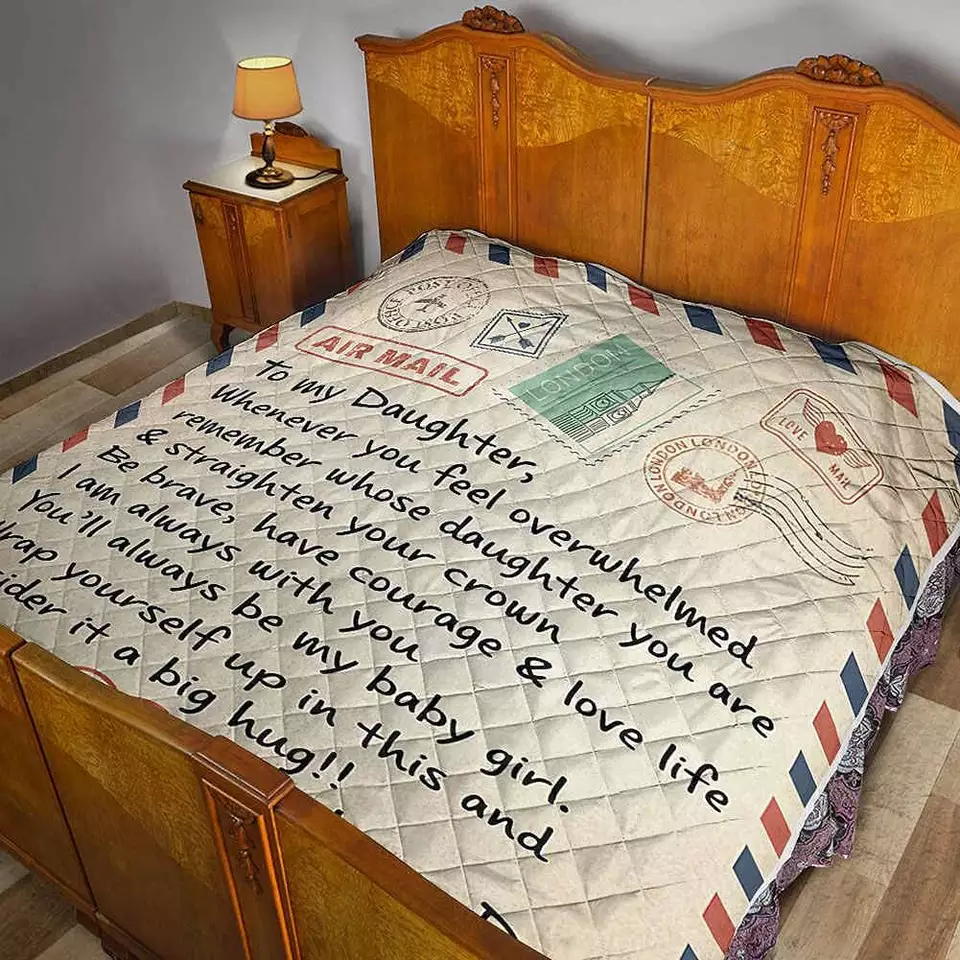 POST OFFICE
POST OFFICE
AIR MAIL
LONDON
LOVE
MAIL
LONDON LONDON LONDON
To my Daughter,
Whenever you feel overwhelmed
remember whose daughter you are
& straighten your crown
Be brave, have courage & love life
I am always with you
You'll always be my baby girl.
yourself up in this and
it a big hug!!